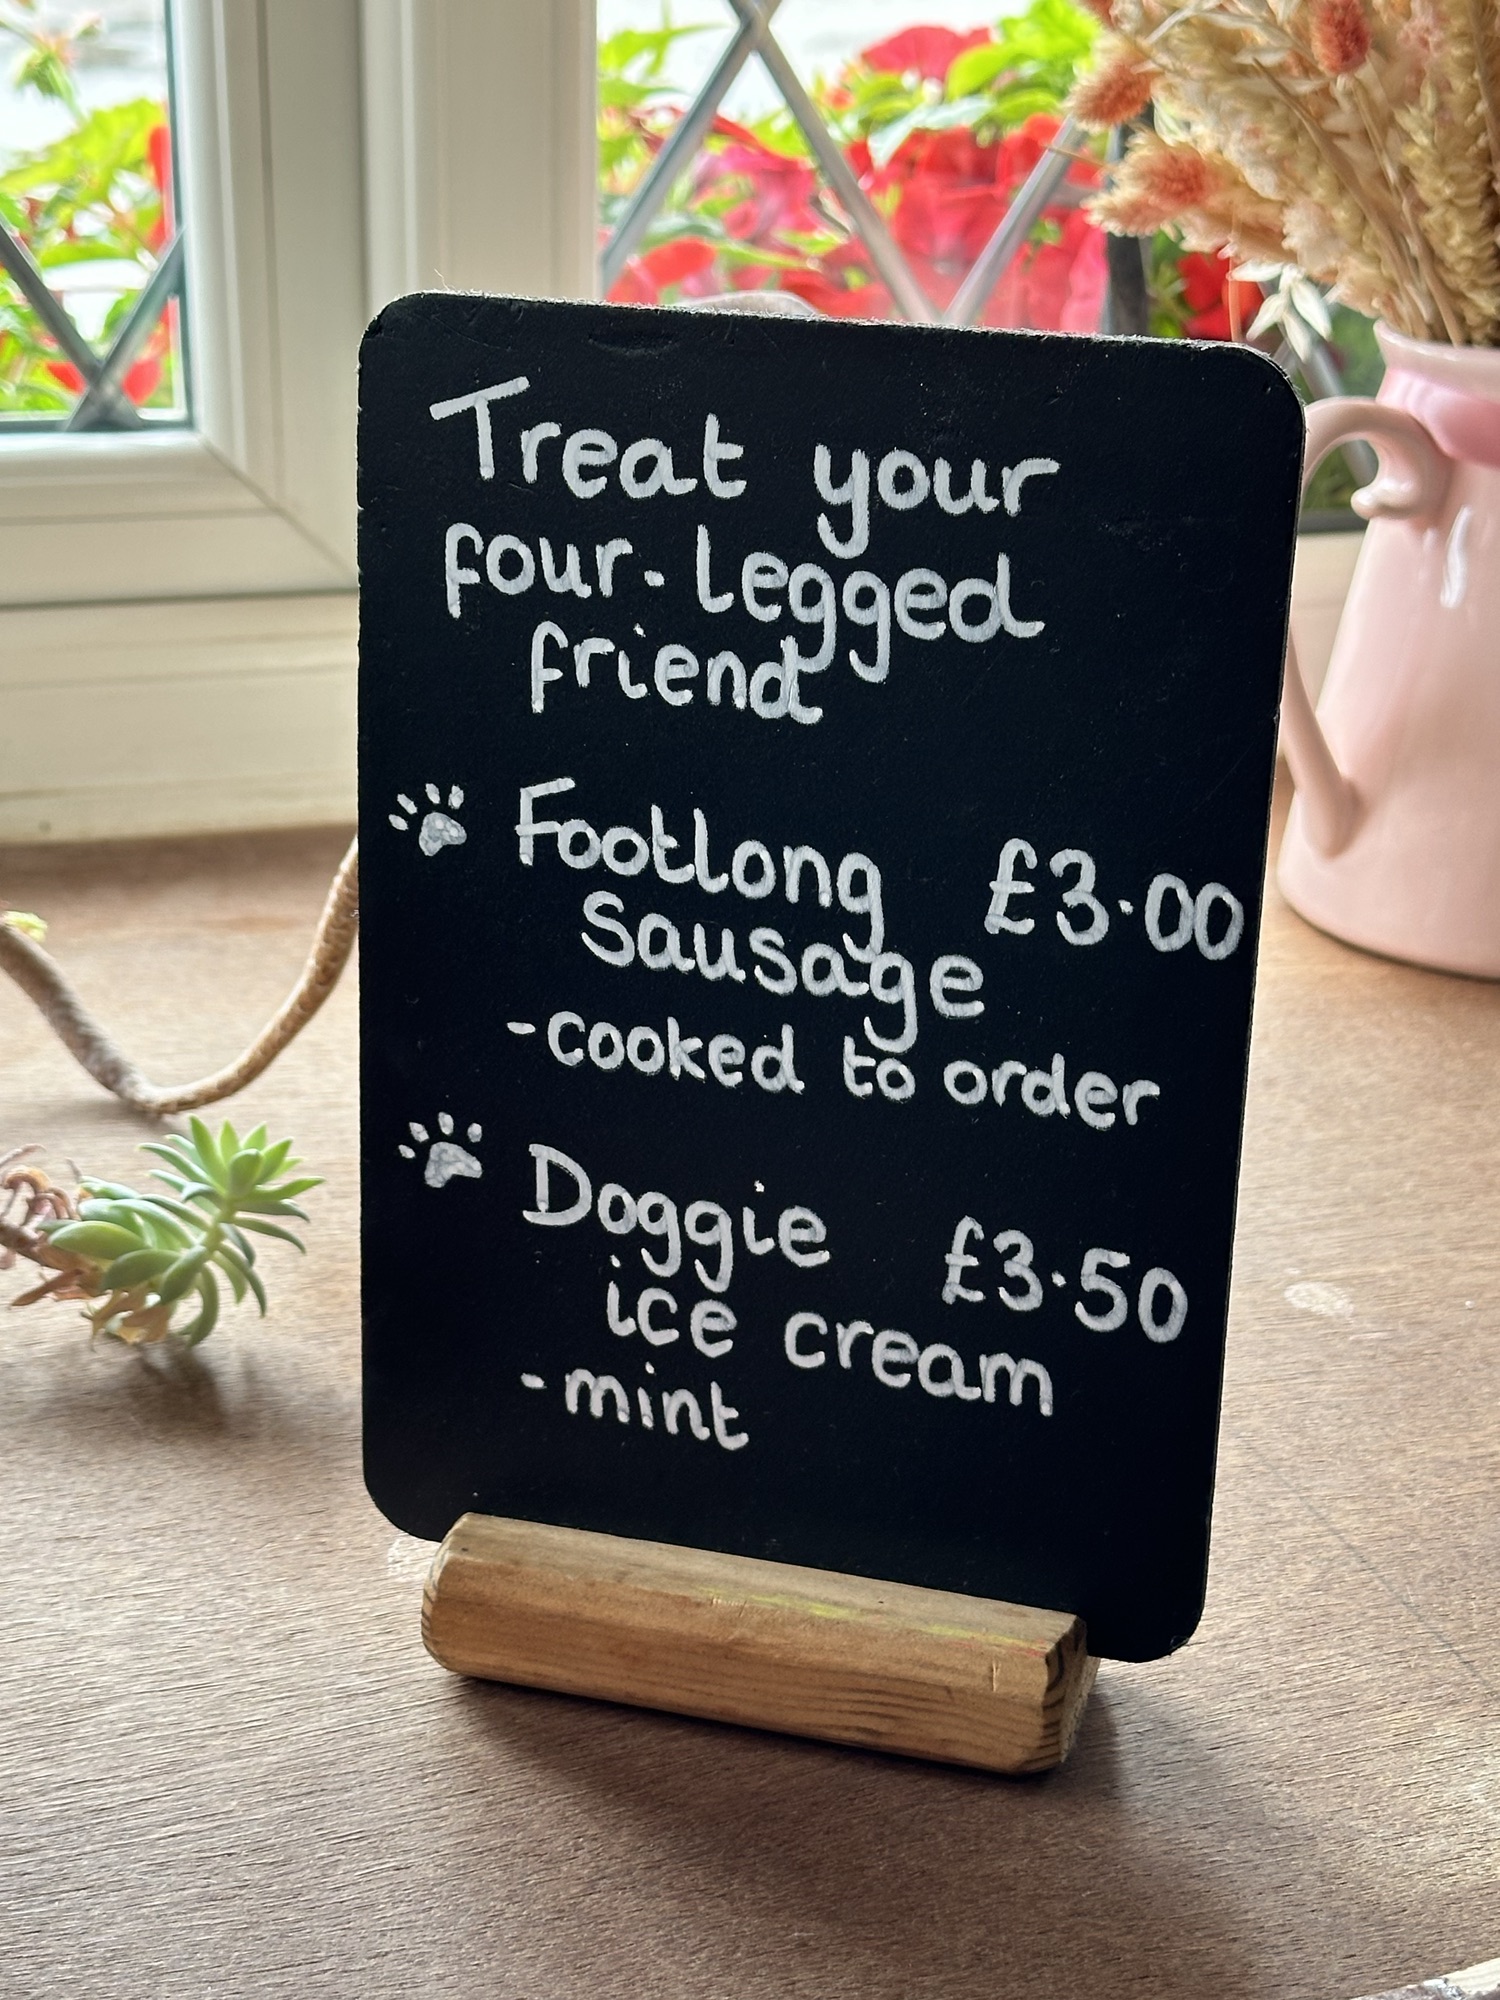 Treat your
four-legged
friend
Footlong £3.00
sausage
-cooked to order
Doggie £3.50
ice cream
-mint